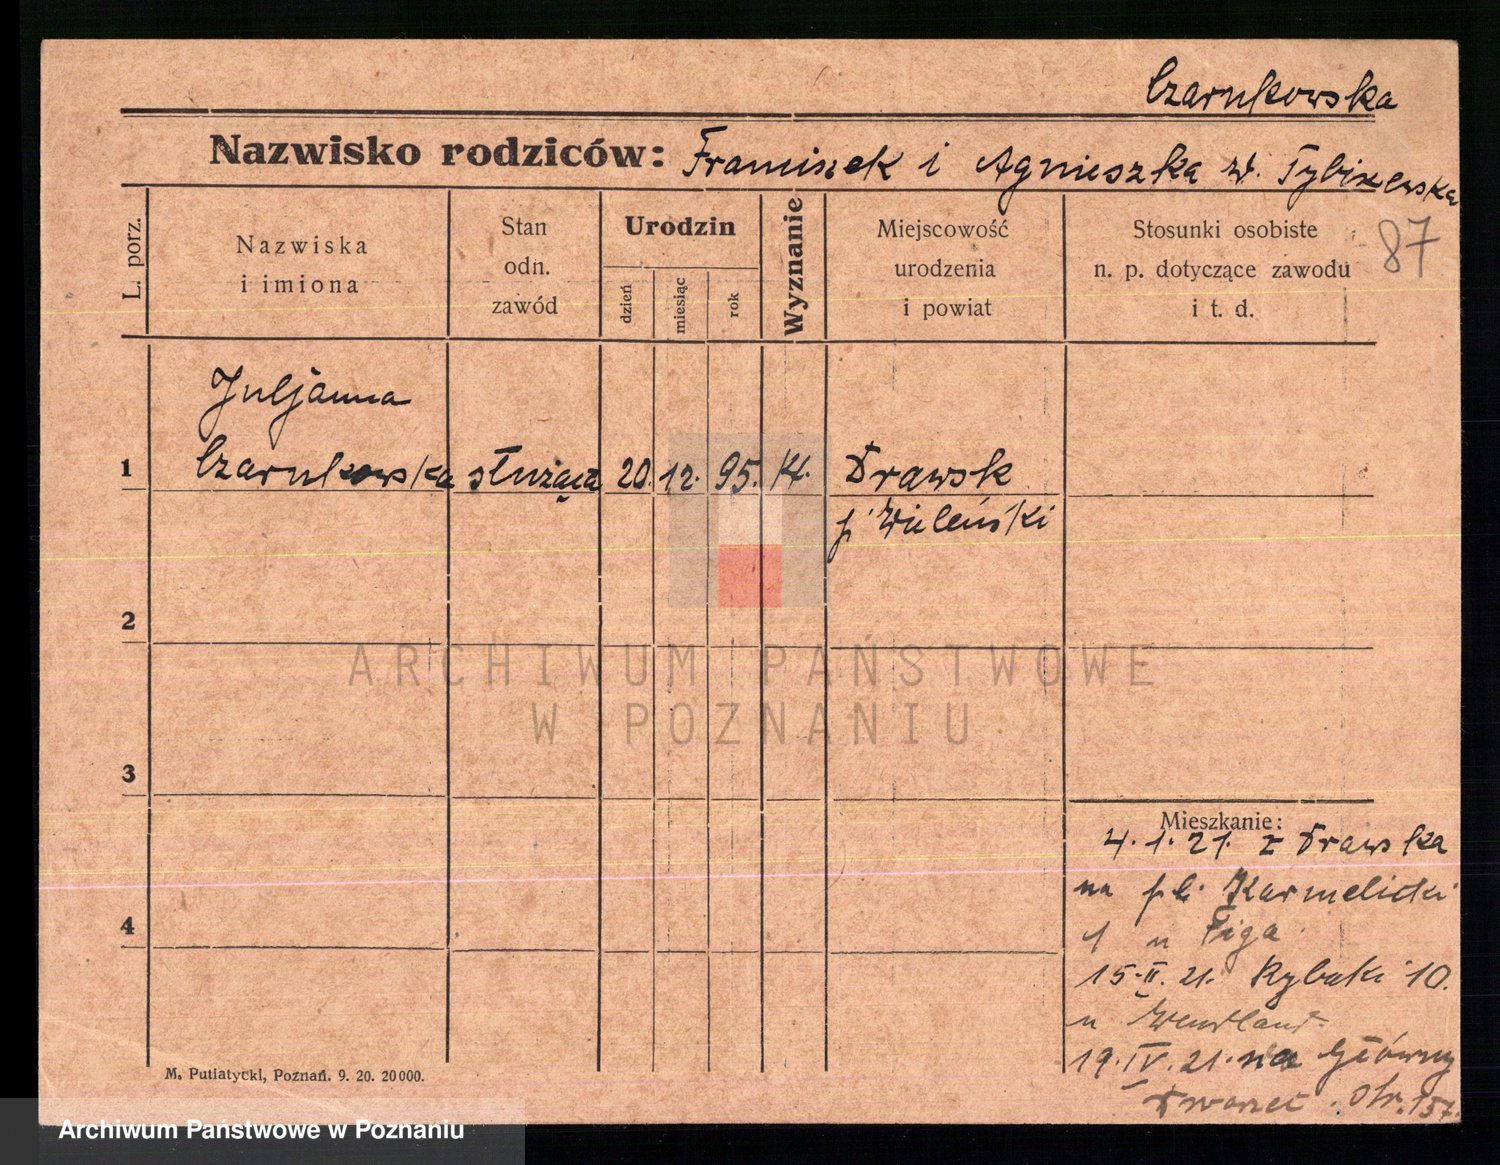 Czarnkowska
Nazwisko rodziców: Franciszek i Agnieszka z d.
87
L. porz.
Nazwiska
i imiona
Stan
odn.
zawód
Urodzin
dzień
miesiąc
rok
Wyznanie
Miejscowość
urodzenia
i powiat
Stosunki osobiste
n. p. dotyczące zawodu
i t. d.
Juljanna
1 Czarnkowska służąca 20. 12. 95. kt. Drawsk
p. Wieleński
2
3
4
ARCHIWUM PAŃSTWOWE
W POZNANIU
Mieszkanie:
4.1.21. z Drawska
na pl. Karmelicki
1 u Figa
15.II.21. Rybaki 10.
u Wendland.
19.IV.21. na Główny
Dworzec. Str. 157.
M. Putiatycki, Poznań. 9. 20. 20000.
Archiwum Państwowe w Poznaniu